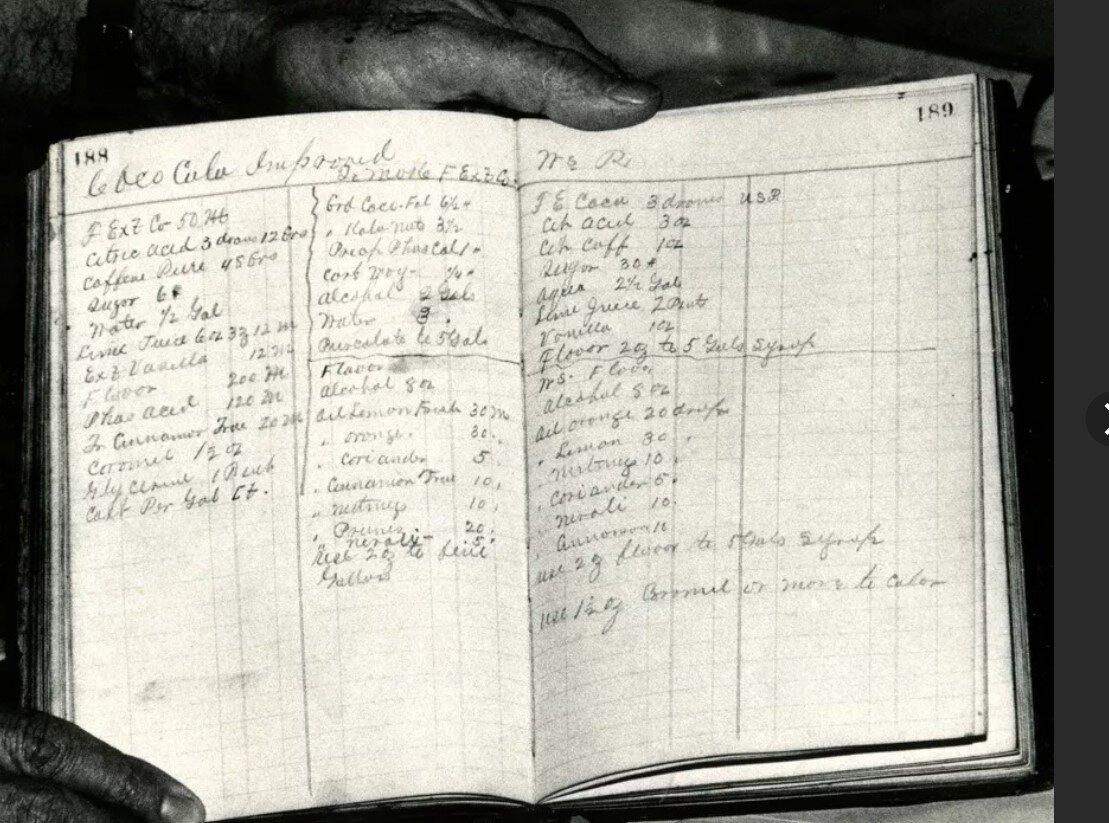 188
Coco Cola Improved
To Make F Ext Co.
F Ext Co
Citric Acid 3 drams 12 Grs
Caffeine Pure 48 Grs
Sugar 6 #
Water 1/2 Gal
Lime Juice 6 oz 12 M
Ext Vanilla 12 M
Flavor 200 M
Phos acid 120 M
Cinnamon True 20 M
Caramel 1 1/2 oz
Glycerine 1
Cost Per Gal Ct.
Grd Coci
" Kola nuts 3 1/2
Phos Cal
Carb
Alcohol 2 Gals
Water 3 "
Percolate to 5 Gals
Flavor
Alcohol 8 oz
Oil Lemon Fresh 30 M
" Orange. 30 "
" Coriander 5 "
" Cinnamon True 10 "
" Nutmeg 10 "
" Prunes 20 "
" neroli - 5 "
Use 2 oz to
Gallons
189
F E Coca 3 drams USP
Cit acid 3 oz
Cit Caff 1 oz
Sugar 30 #
Aqua 2 1/2 Gal
Lime Juice 2 Pints
Vanilla 1 oz
Flavor 2 oz to 5 Gals Syrup
Flavor
Alcohol 8 oz
Oil Orange 20 drops
" Lemon 30 "
" Nutmeg 10 "
" Coriander 5 "
" Neroli 10 "
" Cinnamon 10
use 2 oz flavor to 5 Gals Syrup
use 1 1/2 oz or more to color